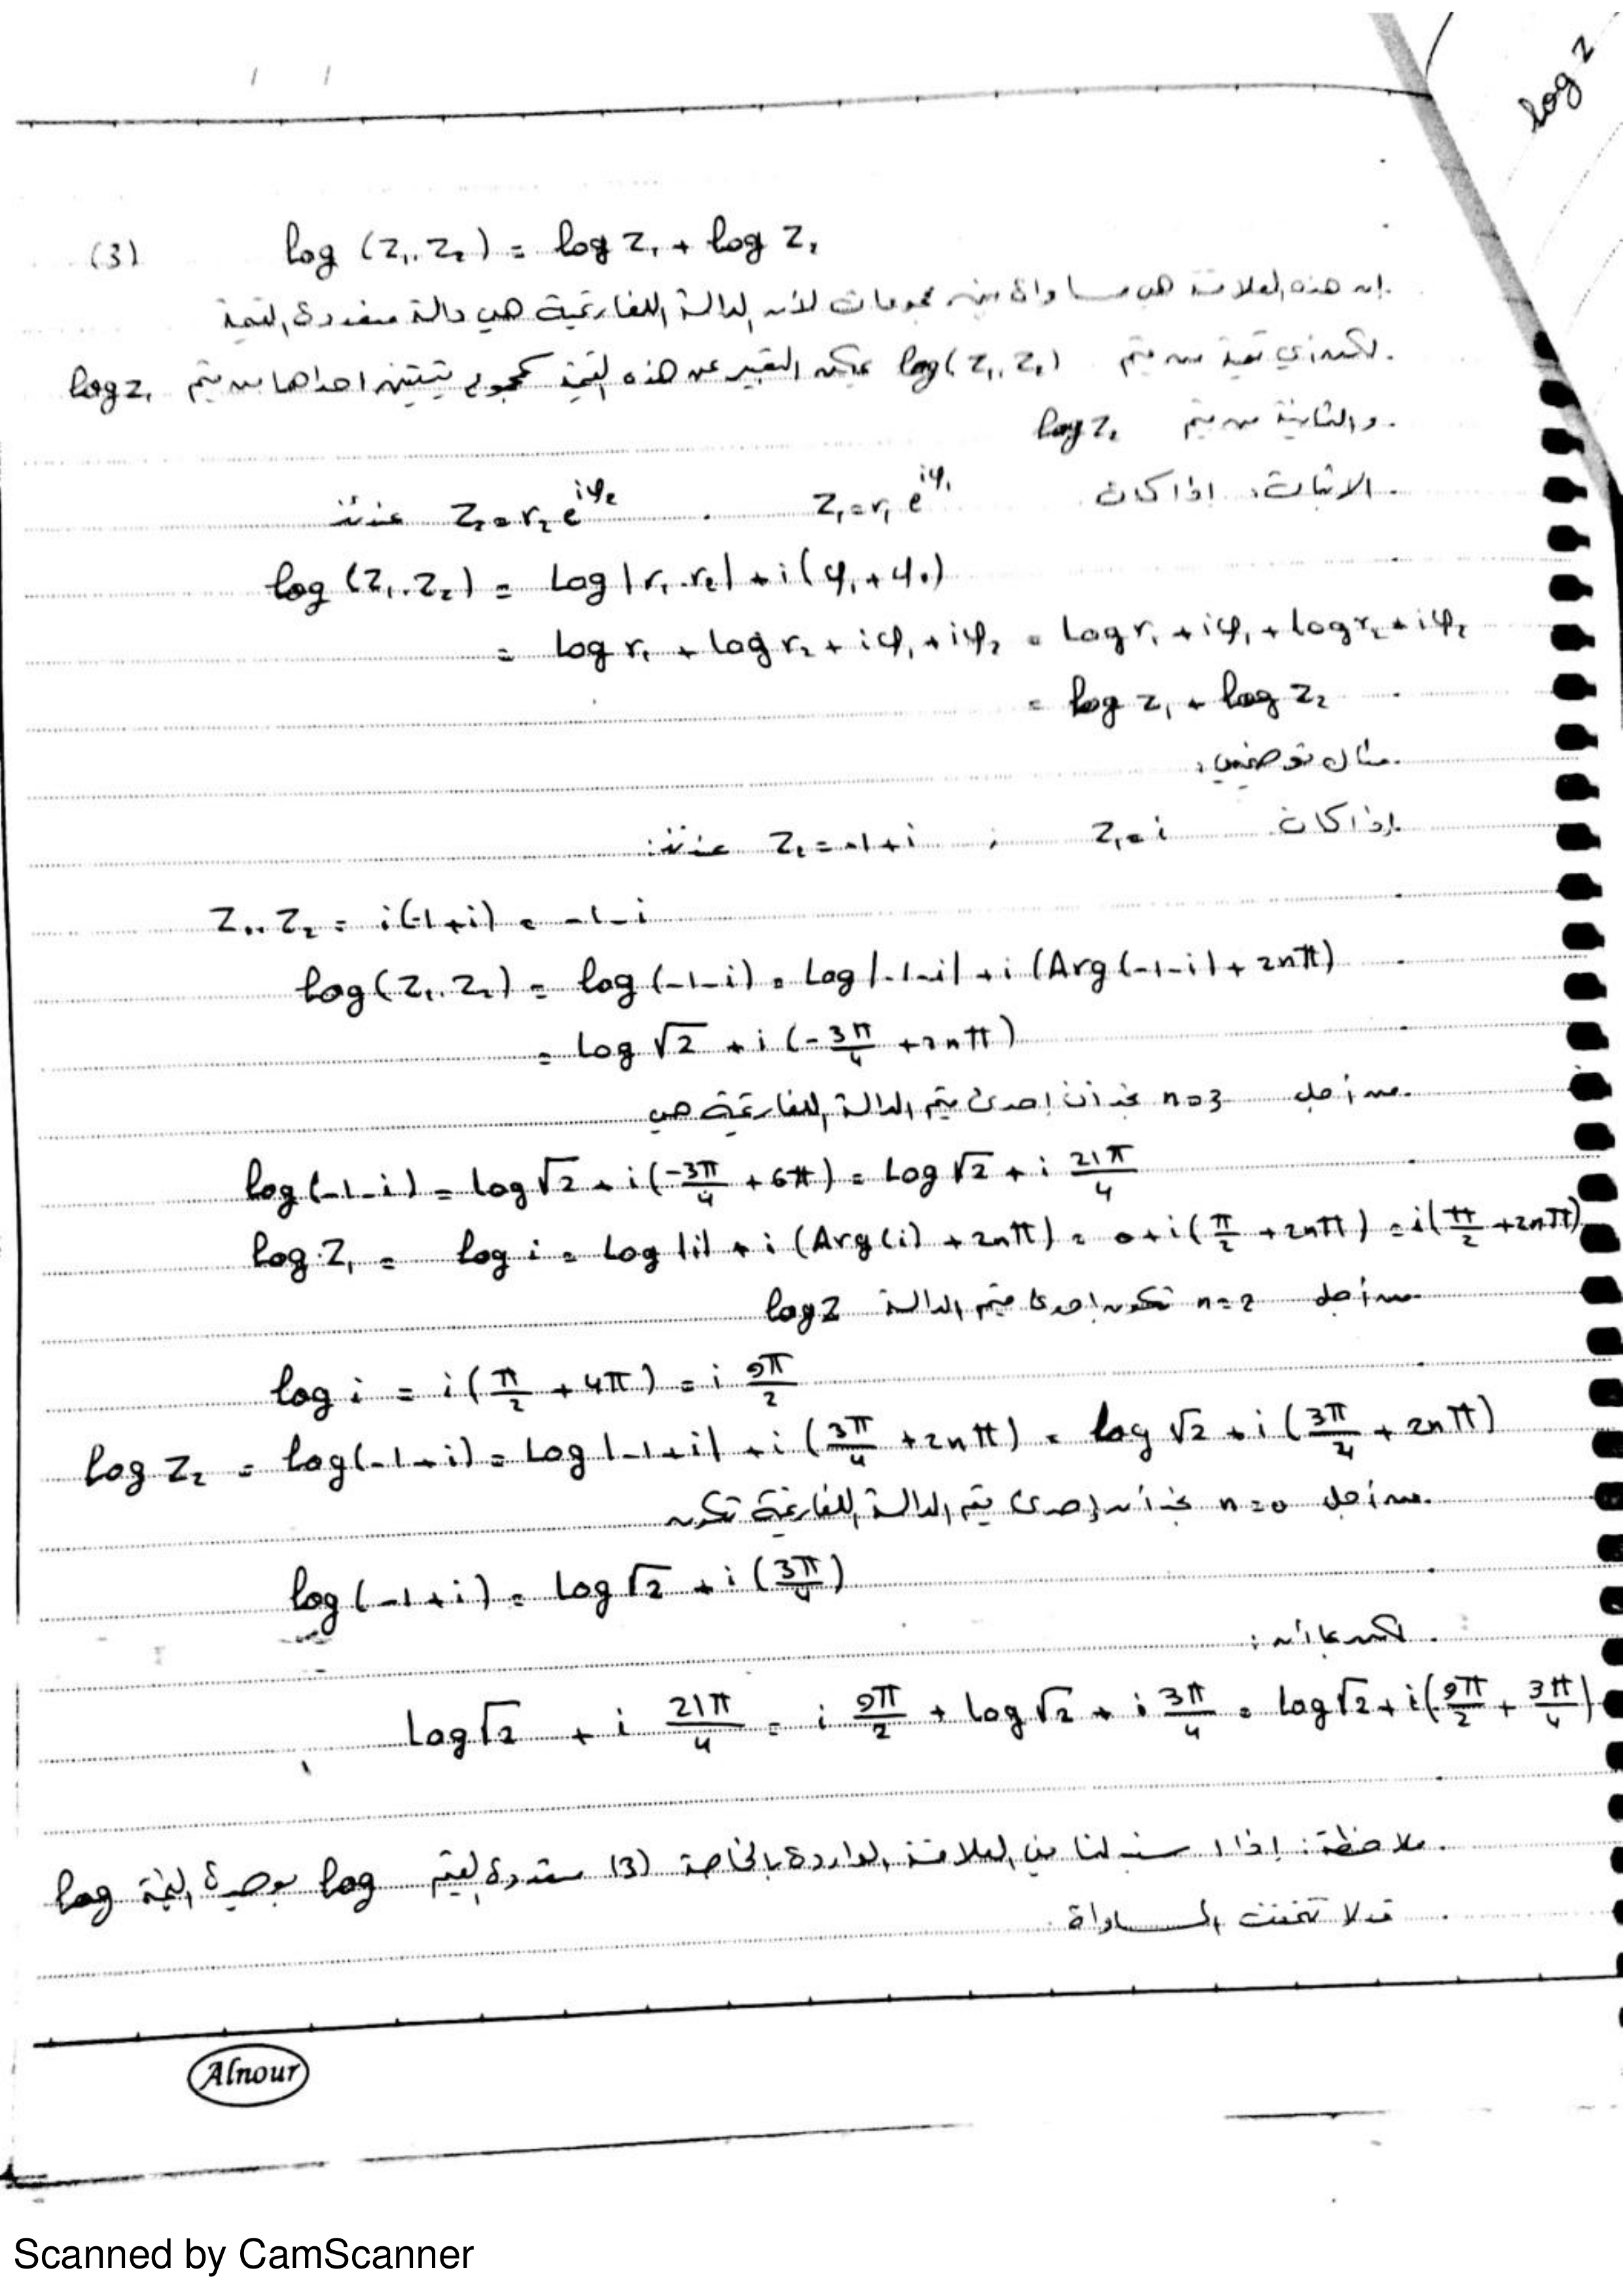 log z
(3) log (z₁.z₂) = log z₁ + log z₂
إن هذه العلاقة هي مساواة بين مجموعات لأن الدالة اللغارتمية هي دالة متعددة القيمة
لكن أي قيمة من قيم log(z₁.z₂) يمكن التعبير عن هذه القيمة كمجموع قيمتين احداها من قيم log z₁
والثانية من قيم log z₂
الاثبات: اذا كان z₁ = r₁ e^{iφ₁} . z₂ = r₂ e^{iφ₂} عندئذ
log (z₁.z₂) = Log |r₁.r₂| + i(φ₁ + φ₂)
= Log r₁ + Log r₂ + iφ₁ + iφ₂ = Log r₁ + iφ₁ + Log r₂ + iφ₂
= log z₁ + log z₂
مثال توضيحي:
إذا كان z₁ = i ; z₂ = -1+i عندئذ:
z₁.z₂ = i(-1+i) = -1-i
log(z₁.z₂) = log(-1-i) = Log|-1-i| + i (Arg(-1-i) + 2nπ)
= Log √2 + i (-3π/4 + 2nπ)
من أجل n=3 نجد أن إحدى قيم الدالة اللغارتمية هي
log(-1-i) = Log √2 + i(-3π/4 + 6π) = Log √2 + i 21π/4
log z₁ = log i = Log |i| + i (Arg(i) + 2nπ) = 0 + i(π/2 + 2nπ) = i(π/2 + 2nπ)
من أجل n=2 تكون إحدى قيم الدالة log z
log i = i(π/2 + 4π) = i 9π/2
log z₂ = log(-1+i) = Log |-1+i| + i (3π/4 + 2nπ) = Log √2 + i (3π/4 + 2nπ)
من أجل n=0 نجد أن إحدى قيم الدالة اللغارتمية تكون
log(-1+i) = Log √2 + i (3π/4)
Log √2 + i 21π/4 = i 9π/2 + Log √2 + i 3π/4 = Log √2 + i(9π/2 + 3π/4)
ملاحظة: إذا استبدلنا في العلاقة الواردة بالخاصة (3) متعددة القيم log بوحيدة القيمة Log
قد لا تتحقق المساواة
Alnour
Scanned by CamScanner